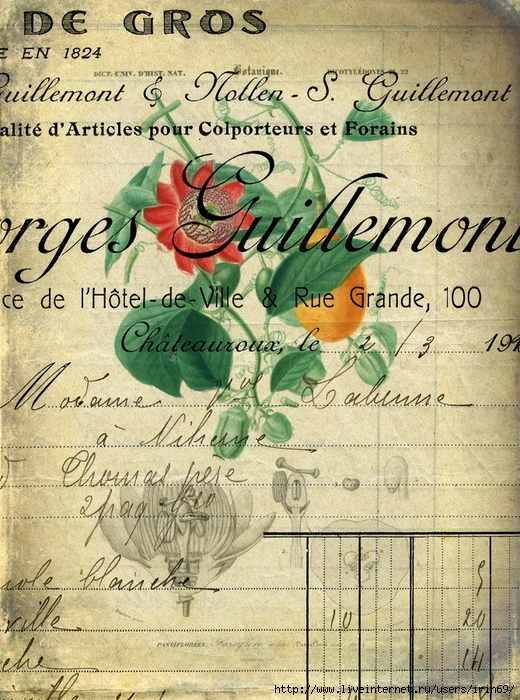 DE GROS
E EN 1824
DICT. UNIV. D'HIST. NAT. Botanique. DICOTYLÉDONES 22
Guillemont & Nollen-S. Guillemont
alité d'Articles pour Colporteurs et Forains
orges Guillemont
ce de l'Hôtel-de-Ville & Rue Grande, 100
Châteauroux, le 2/3 191
Madame Labenne
à
Thomas père
2 paq
blanche 5
ville 10 20
che 14
PASSIFLORÉES.
http://www.liveinternet.ru/users/irin69/